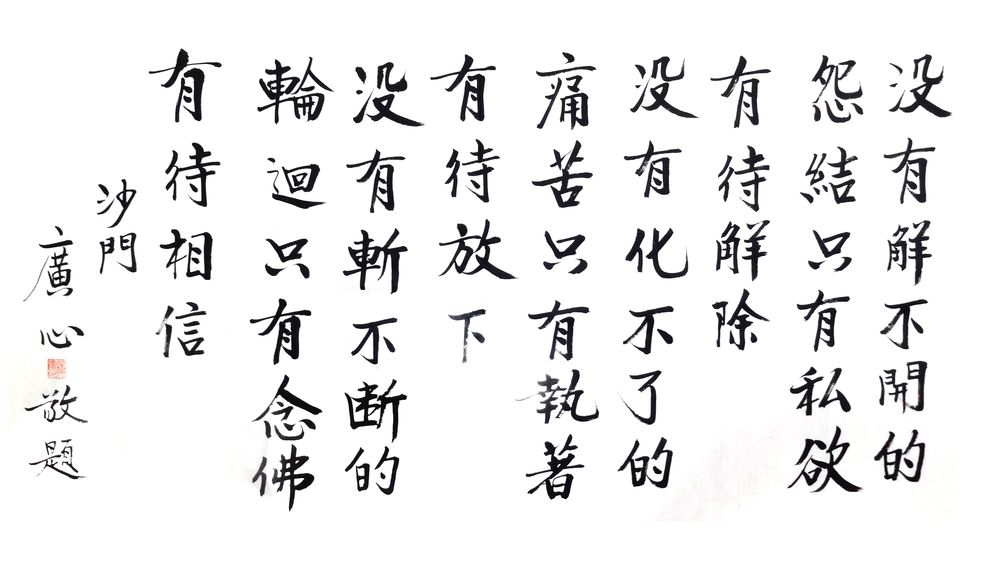 没有解不開的
怨結只有私欲
有待解除
没有化不了的
痛苦只有執著
有待放下
没有斬不断的
輪迴只有念佛
有待相信
沙門
廣心敬題